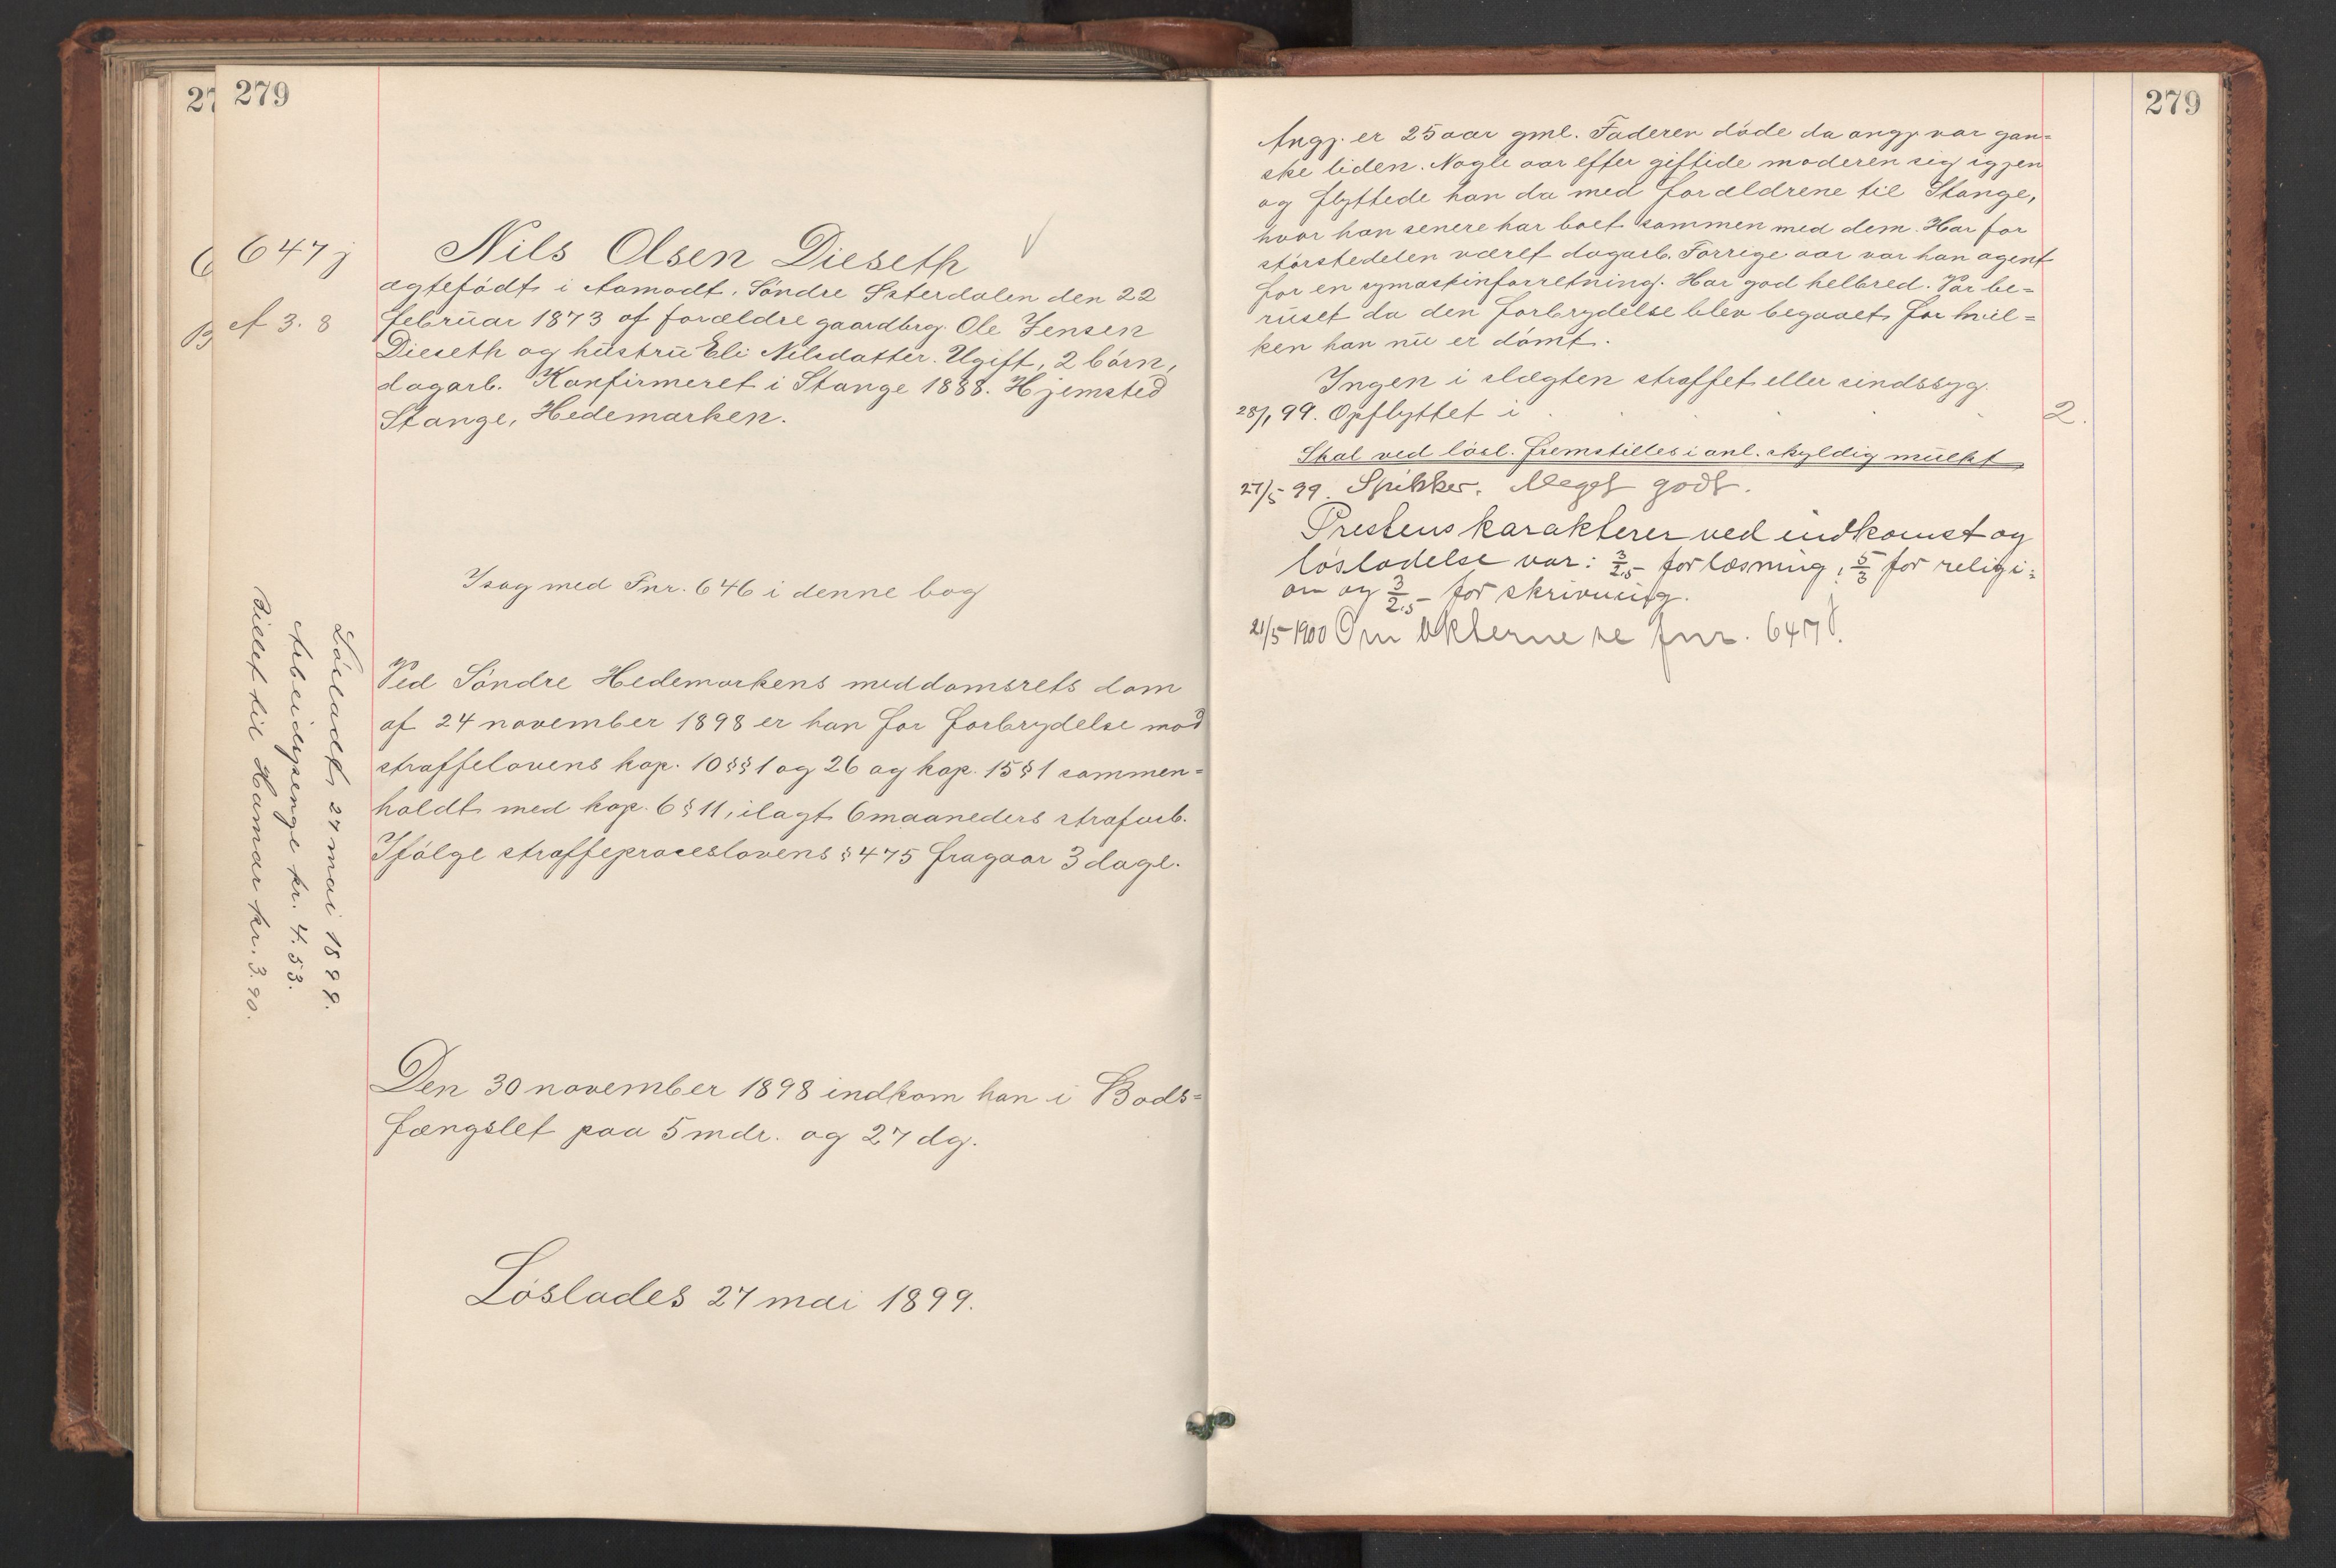 279
647 j
cf 3. 8
Nils Olsen Dieseth
ægtefødt i Aamodt, Søndre Østerdalen den 22
februar 1873 af forældre gaardbrg. Ole Jensen
Dieseth og hustru Eli Nilsdatter. Ugift, 2 børn,
dagarb. Konfirmeret i Stange 1888. Hjemsted
Stange, Hedemarken.
I sag med Fnr. 646 i denne bog
Ved Søndre Hedemarkens meddomsrets dom
af 24 november 1898 er han for forbrydelse mod
straffelovens kap. 10 §§ 1 og 26 og kap. 15 § 1 sammen=
holdt med kap. 6 § 11, ilagt 6 maaneders strafarb.
Ifølge straffeproceslovens § 475 fragaar 3 dage.
Den 30 november 1898 indkom han i Bods=
fængslet paa 5 mdr. og 27 dg.
Løslades 27 mai 1899.
Løsladt 27 mai 1899.
Arbeidspenge kr. 4.53.
Billet til Hamar kr. 3.90.
279
Angj. er 25 aar gml. Faderen døde da angj. var gan=
ske liden. Nogle aar efter giftede moderen sig igjen
og flyttede han da med forældrene til Stange,
hvor han senere har boet sammen med dem. Har for
størstedelen været dagarb. Forrige aar var han agent
for en symaskinforretning. Har god helbred. Var be=
ruset da den forbrydelse blev begaaet, for hvil=
ken han nu er dømt.
Ingen i slægten straffet eller sindssyg.
28/1 99. Opflyttet i . . . . 2.
Skal ved løsl. fremstilles i anl. skyldig mulkt
27/5 99. Spikker. Meget godt.
Prestens karakterer ved indkomst og
løsladelse var: 3/2,5 for læsning, 5/3 for religi=
on og 3/2,5 for skrivning.
21/5 1900 Om akterne se fnr. 647 j.